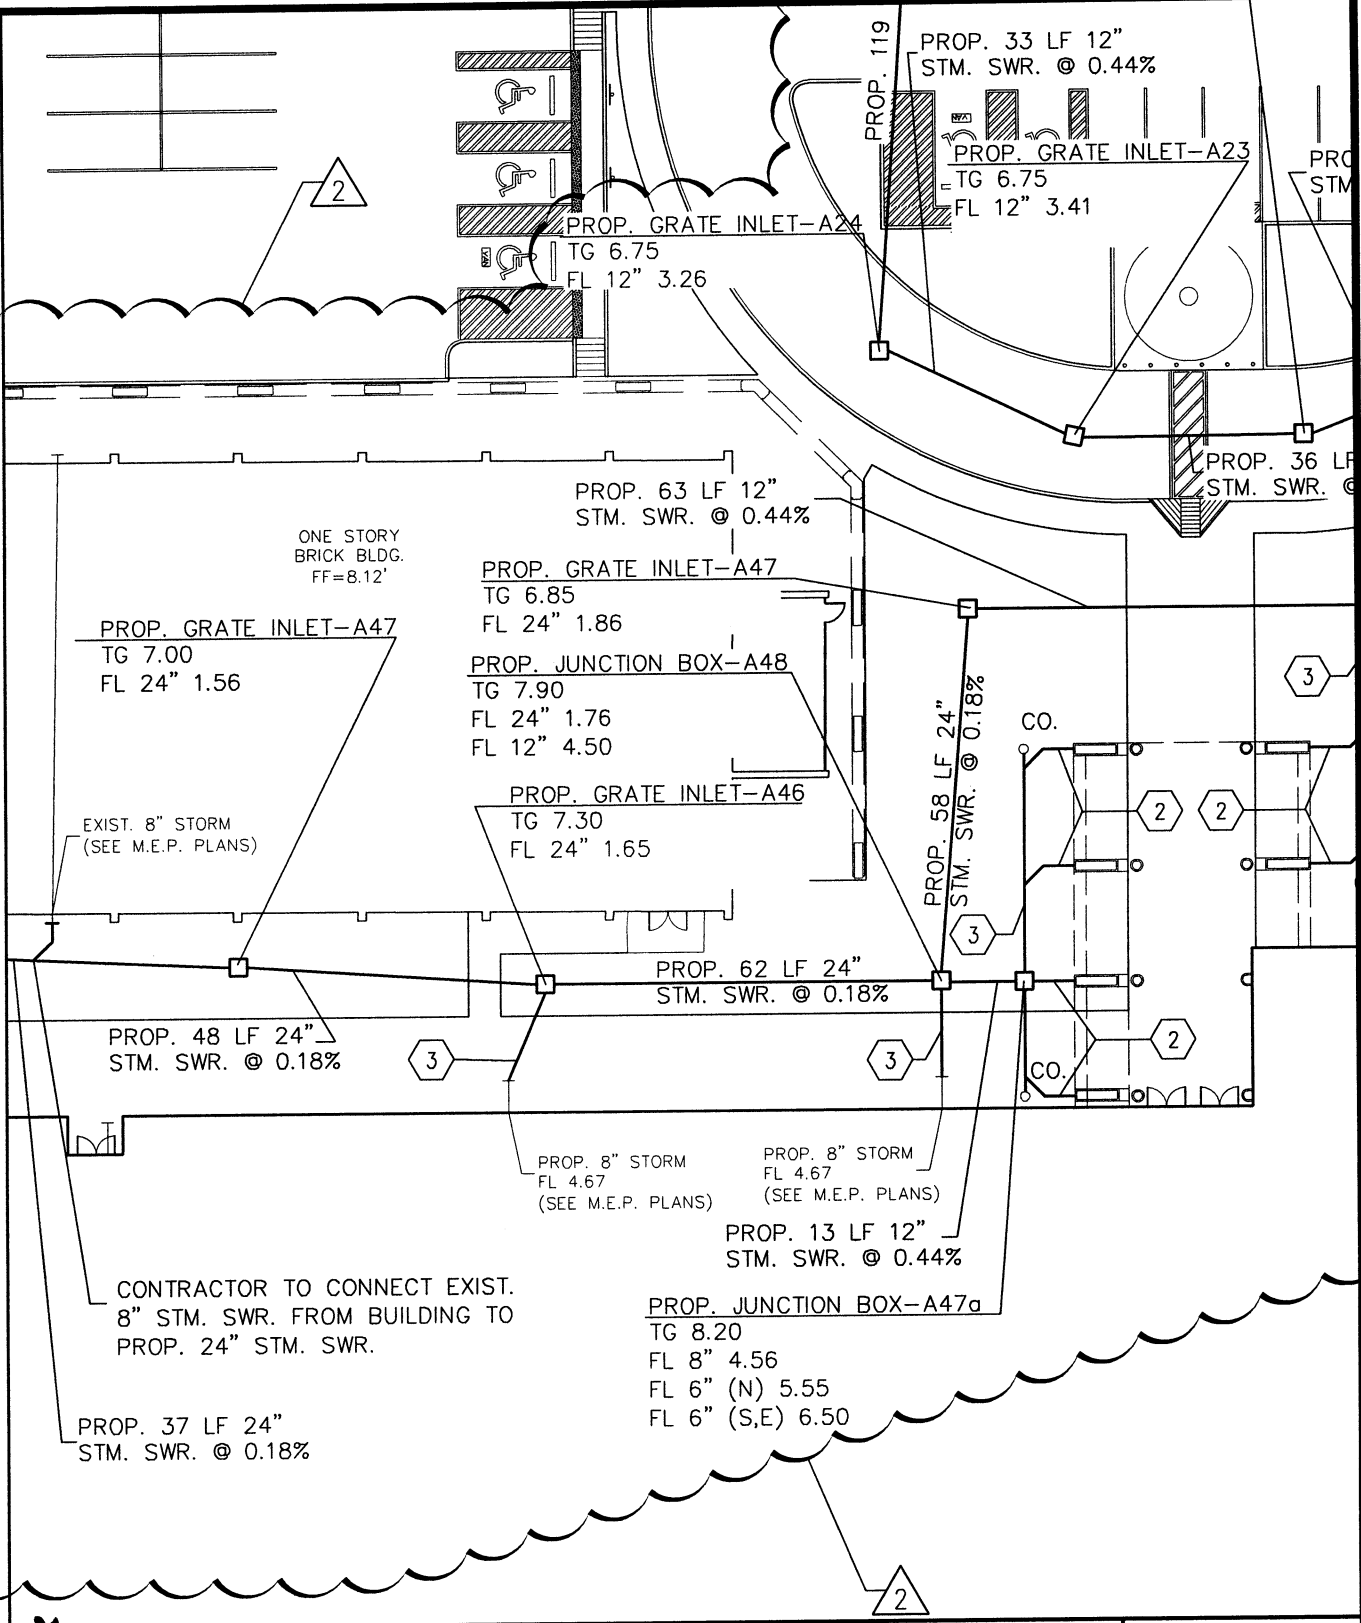 PROP. 119
PROP. 33 LF 12"
STM. SWR. @ 0.44%
VAN
PROP. GRATE INLET-A23
TG 6.75
FL 12" 3.41
2
PROP. GRATE INLET-A24
TG 6.75
FL 12" 3.26
VAN
PROP. 36 LF
STM. SWR. @
PROP. 63 LF 12"
STM. SWR. @ 0.44%
ONE STORY
BRICK BLDG.
FF=8.12'
PROP. GRATE INLET-A47
TG 6.85
FL 24" 1.86
PROP. GRATE INLET-A47
TG 7.00
FL 24" 1.56
PROP. JUNCTION BOX-A48
TG 7.90
FL 24" 1.76
FL 12" 4.50
3
PROP. 58 LF 24"
STM. SWR. @ 0.18%
CO.
PROP. GRATE INLET-A46
TG 7.30
FL 24" 1.65
2
2
EXIST. 8" STORM
(SEE M.E.P. PLANS)
3
PROP. 62 LF 24"
STM. SWR. @ 0.18%
PROP. 48 LF 24"
STM. SWR. @ 0.18%
3
3
2
CO.
PROP. 8" STORM
FL 4.67
(SEE M.E.P. PLANS)
PROP. 8" STORM
FL 4.67
(SEE M.E.P. PLANS)
PROP. 13 LF 12"
STM. SWR. @ 0.44%
CONTRACTOR TO CONNECT EXIST.
8" STM. SWR. FROM BUILDING TO
PROP. 24" STM. SWR.
PROP. JUNCTION BOX-A47a
TG 8.20
FL 8" 4.56
FL 6" (N) 5.55
FL 6" (S,E) 6.50
PROP. 37 LF 24"
STM. SWR. @ 0.18%
2